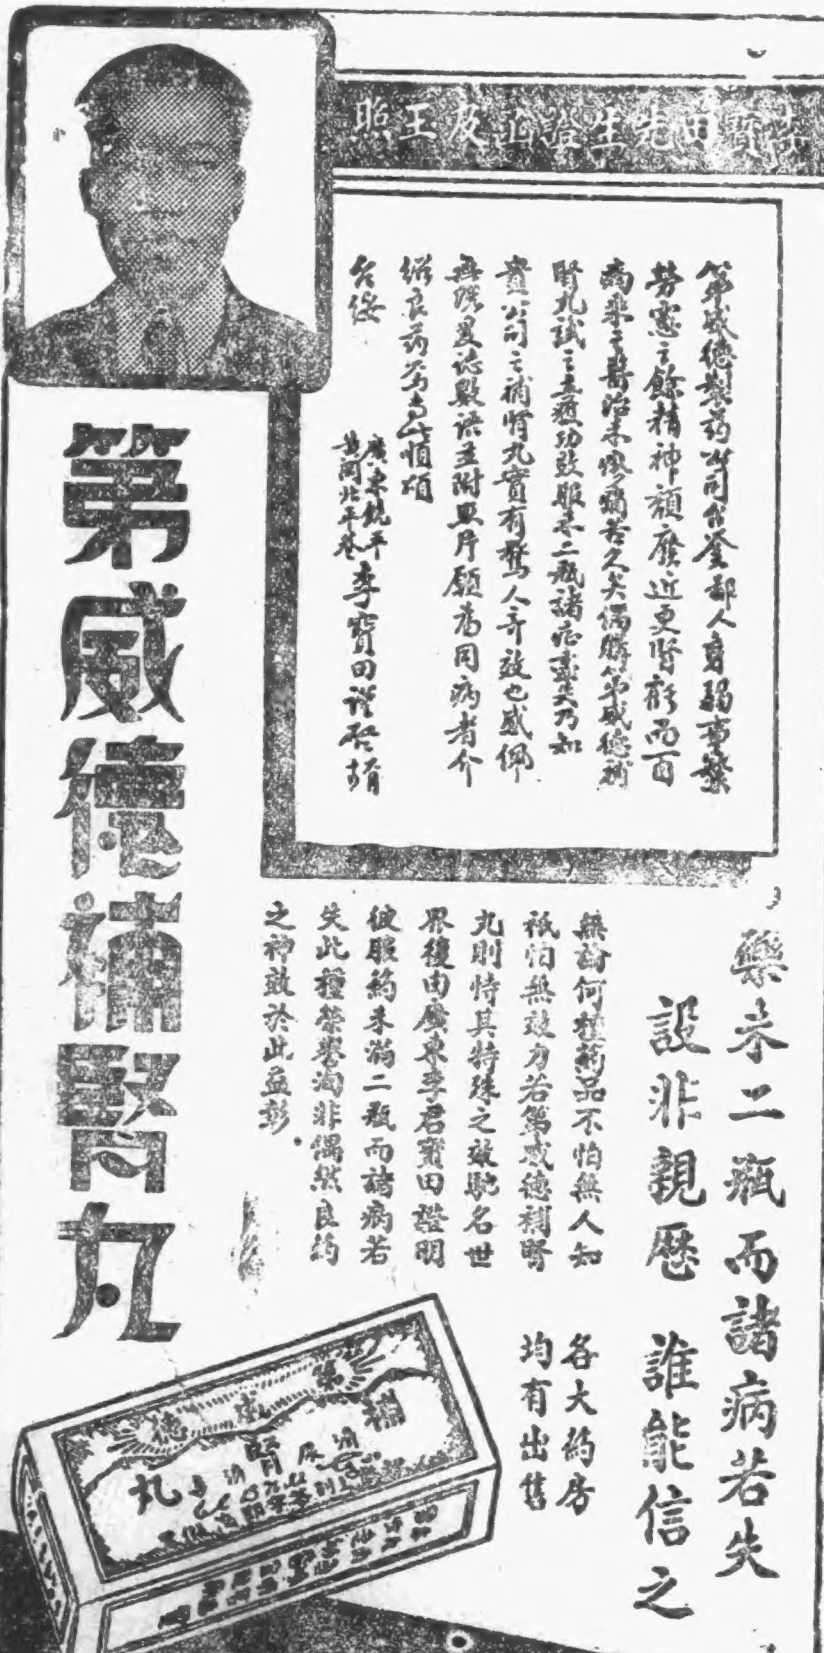 李寶田先生證函及玉照
第威德製药公司台鉴鄙人身弱事繁
劳憲之餘精神頹廢近更腎虧而百
病来之醫治未愈痛苦久矣偶購第威德補
腎丸試之立獲功效服不二瓶諸症盡失乃知
貴公司之補腎丸實有驚人奇效也感佩
無既爰誌數语并附照片願為同病者介
绍良药为专此恒頌
台绥
廣東饒平
黄岡北平巷
李寶田謹啓
第威德補腎丸
藥未二瓶而諸病若失
設非親歷 誰能信之
無論何種葯品不怕無人知
祇怕無效力若第威德補腎
丸則恃其特殊之效馳名世
界復由廣東李君寶田證明
彼服葯未滿二瓶而諸病若
失此種榮譽洵非偶然良葯
之神效於此益彰.
各大葯房
均有出售
第威德
補腎丸